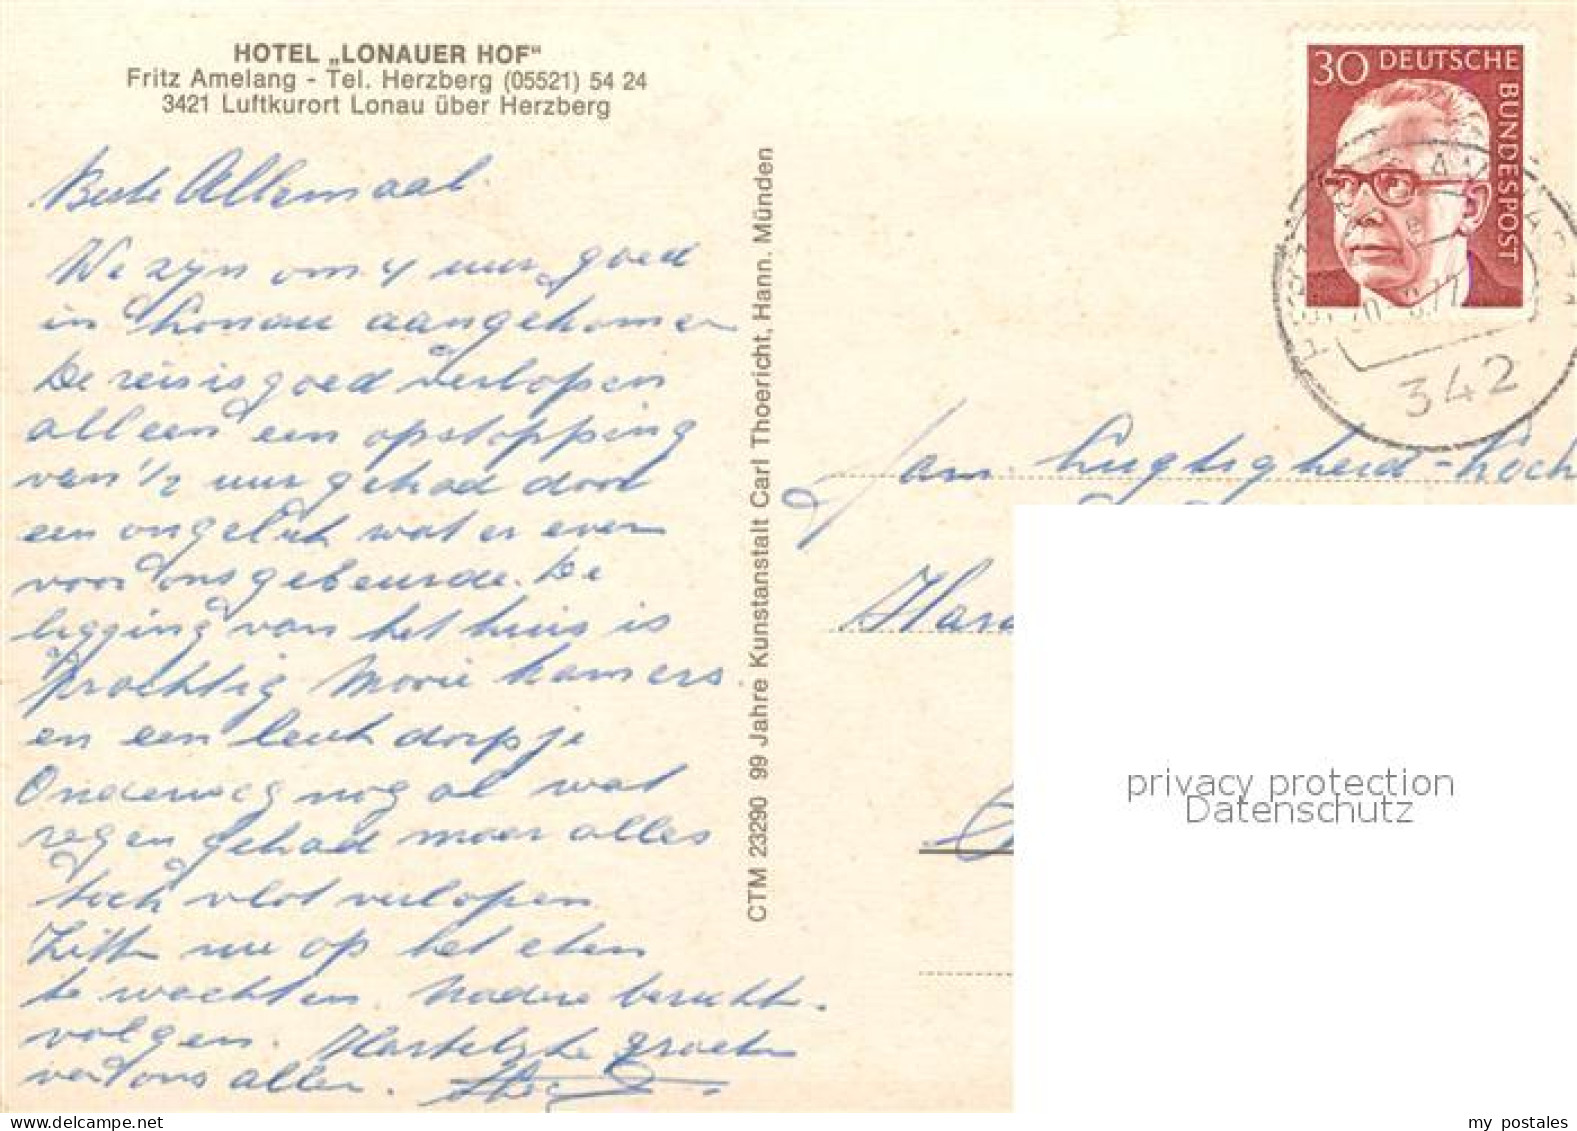 HOTEL „LONAUER HOF“
Fritz Amelang - Tel. Herzberg (05521) 54 24
3421 Luftkurort Lonau über Herzberg
Beste Allemaal
We zijn om 4 uur goed
in Lonau aangekomen
De reis is goed verlopen
alleen een opstopping
van 1/2 uur gehad door
een ongeluk wat er even
voor ons gebeurde. De
ligging van het huis is
prachtig Mooie kamers
en een leuk dorpje
Onderweg nog al wat
regen gehad maar alles
toch vlot verlopen
Zitten nu op het eten
te wachten. Nadere bericht
volgen. Hartelijke groeten
van ons allen.
CTM 23290 99 Jahre Kunstanstalt Carl Thoericht, Hann. Münden
30 DEUTSCHE
BUNDESPOST
342
Fam.
privacy protection
Datenschutz
my postales